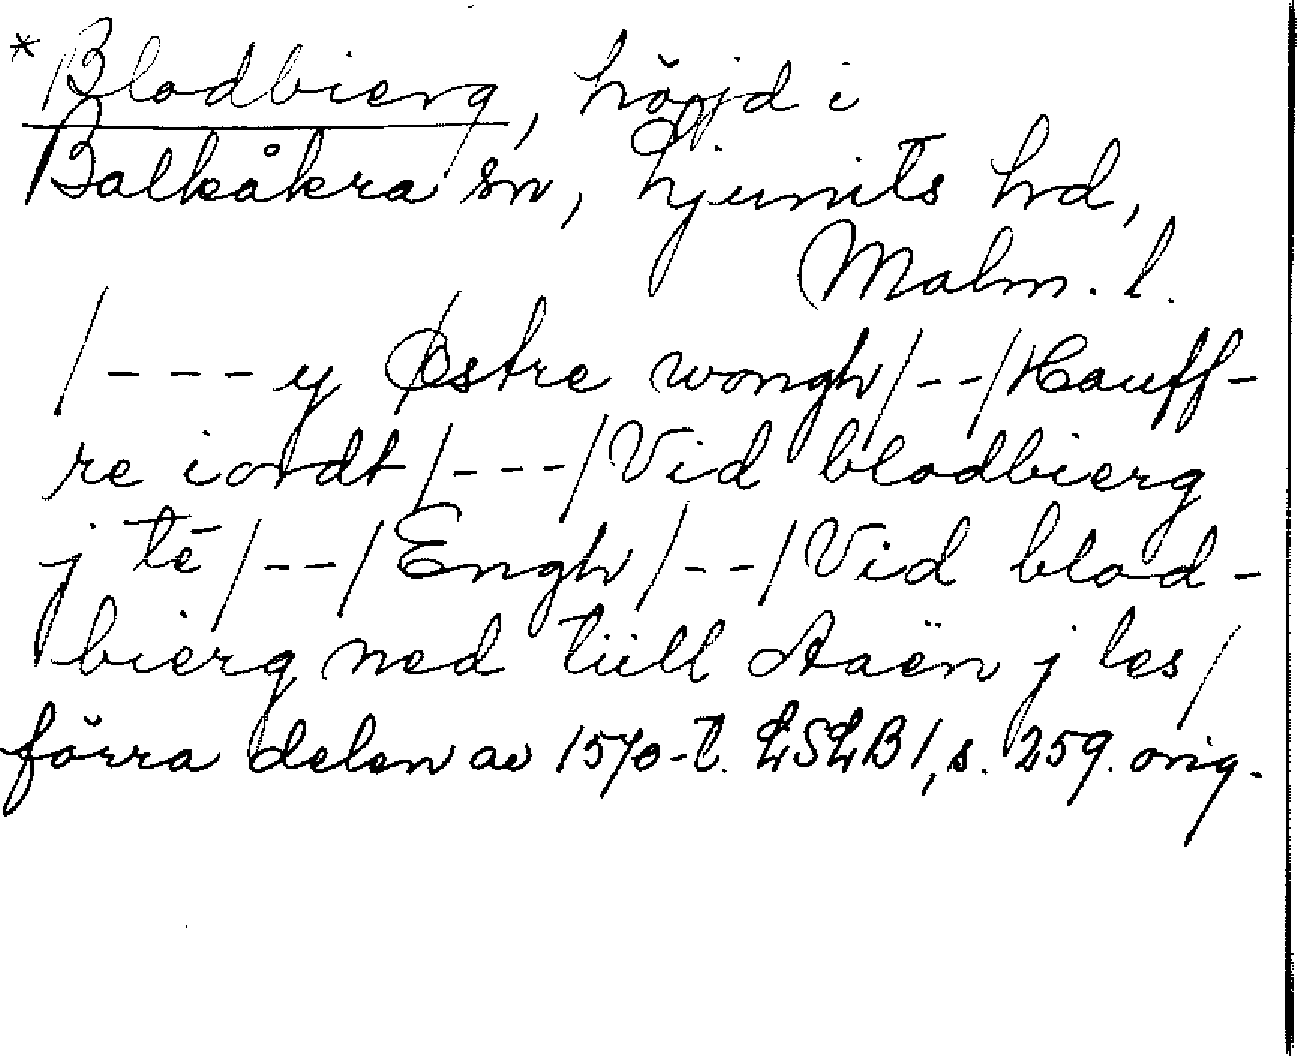 *Blodbierg, höjd i
Balkåkra sn, Ljunits hd,
Malm. l.
/---y Østre wongh/--/Hauff-
re iordt/---/Vid blodbierg
j té/--/Engh/--/Vid blod-
bierg ned tüll Aaën j les/
förra delen av 1570-t. LSLB1, s. 259. orig.